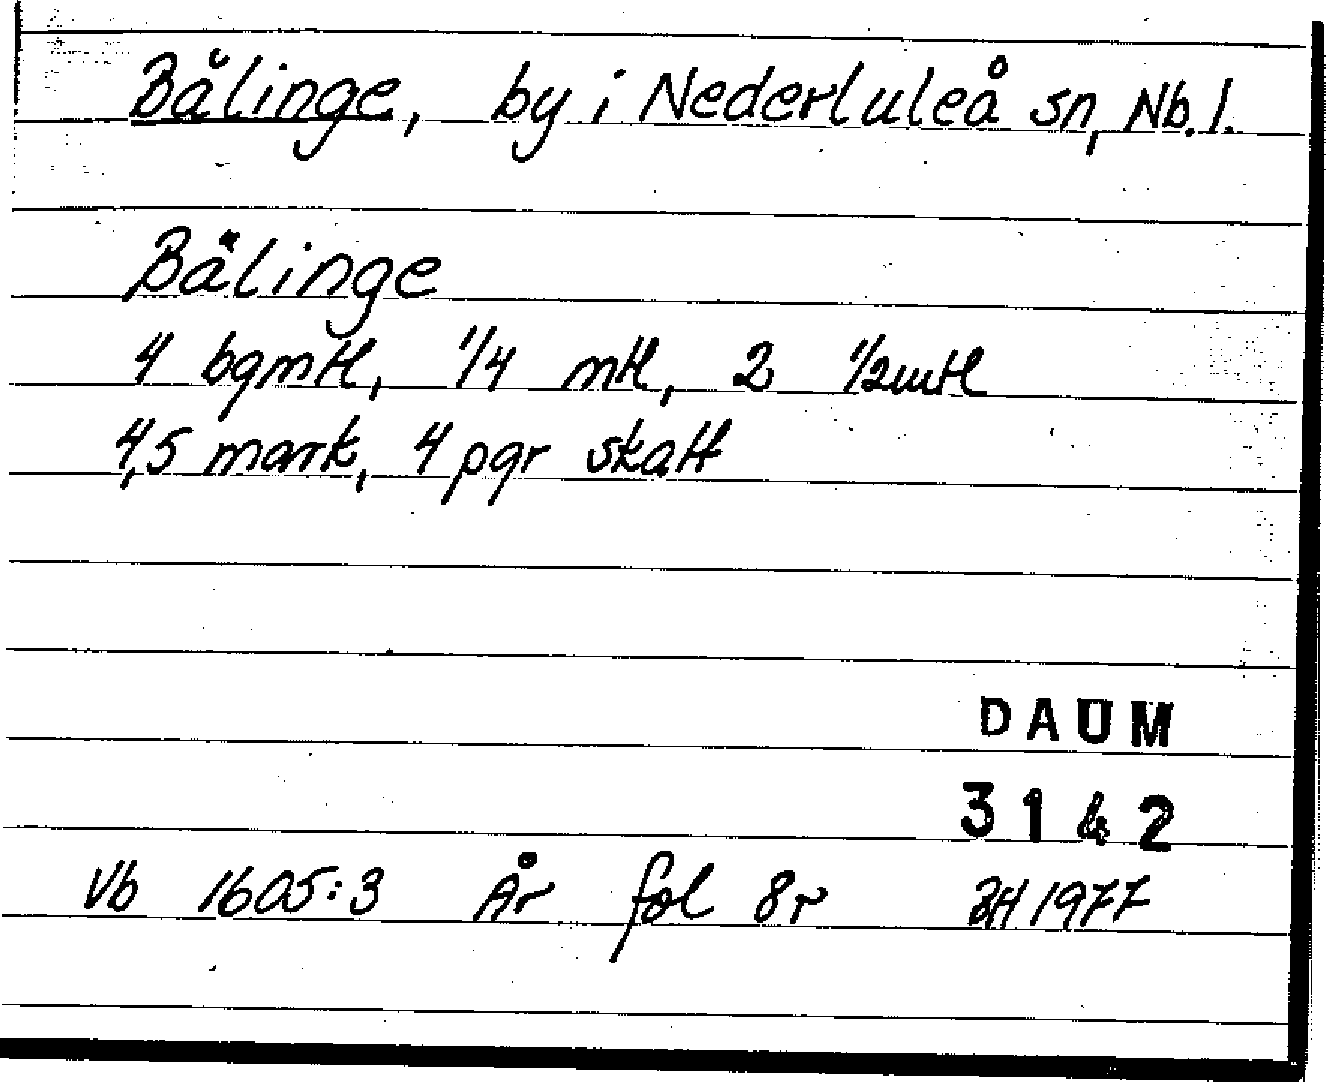 Bålinge, by i Nederluleå sn, Nb. l.
Bälinge
4 bgmtl, 1/4 mtl, 2 1/2 mtl
4,5 mark, 4 pgr skatt
DAUM
3142
Vb 1605:3 År fol 8r BH 1977